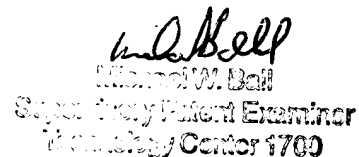 Michael W. Ball
Supervisory Patent Examiner
Technology Center 1700